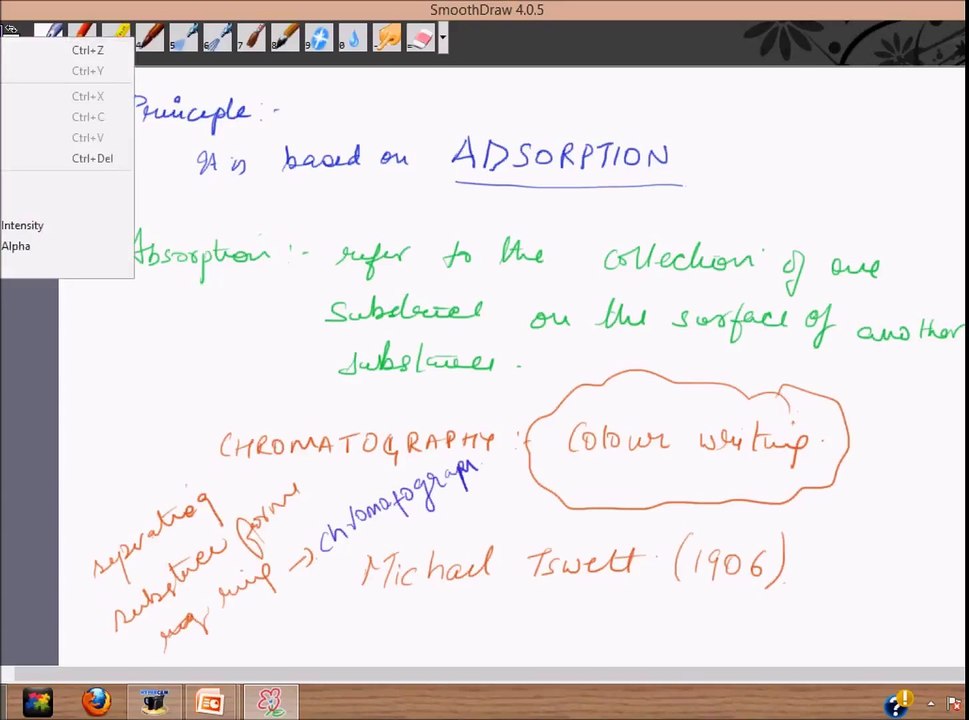 SmoothDraw 4.0.5
Ctrl+Z
Ctrl+Y
Ctrl+X
Ctrl+C
Ctrl+V
Ctrl+Del
Intensity
Alpha
Principle :-
is based on ADSORPTION
Absorption :- refer to the collection of one
on the surface of another
substance.
CHROMATOGRAPHY :- Colour writing.
seperating
substance forms
ring → chromatograph.
Michael Tswett (1906).